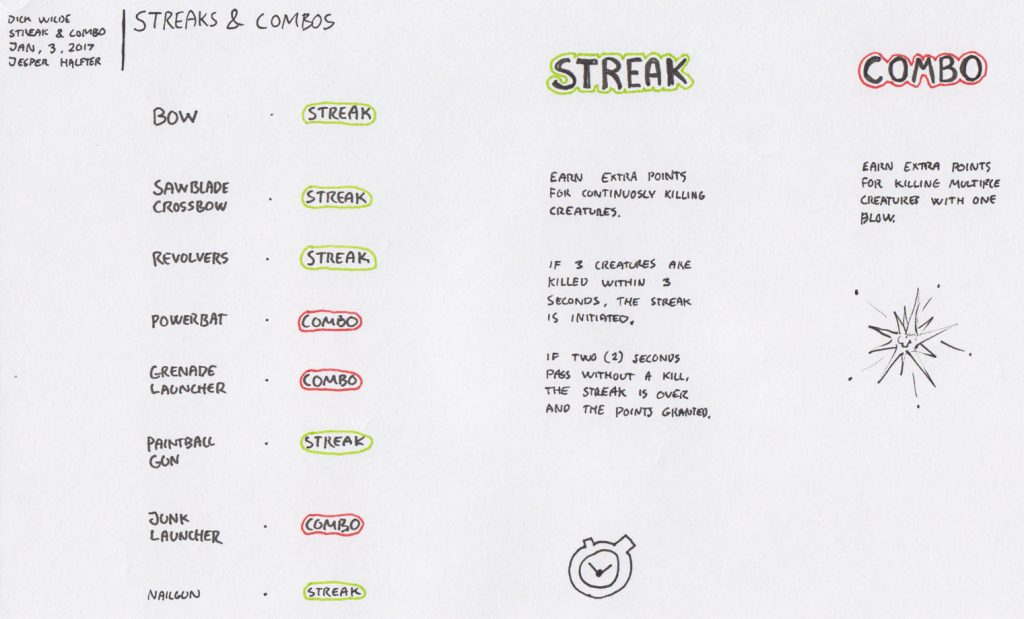 DICK WILDE
STREAK & COMBO
JAN, 3, 2017
JESPER HALFTER
STREAKS & COMBOS
BOW · STREAK
SAWBLADE
CROSSBOW · STREAK
REVOLVERS · STREAK
POWERBAT · COMBO
GRENADE
LAUNCHER · COMBO
PAINTBALL
GUN · STREAK
JUNK
LAUNCHER · COMBO
NAILGUN · STREAK
STREAK
EARN EXTRA POINTS
FOR CONTINUOSLY KILLING
CREATURES.
IF 3 CREATURES ARE
KILLED WITHIN 3
SECONDS, THE STREAK
IS INITIATED.
IF TWO (2) SECONDS
PASS WITHOUT A KILL,
THE STREAK IS OVER
AND THE POINTS GRANTED.
COMBO
EARN EXTRA POINTS
FOR KILLING MULTIPLE
CREATURES WITH ONE
BLOW.